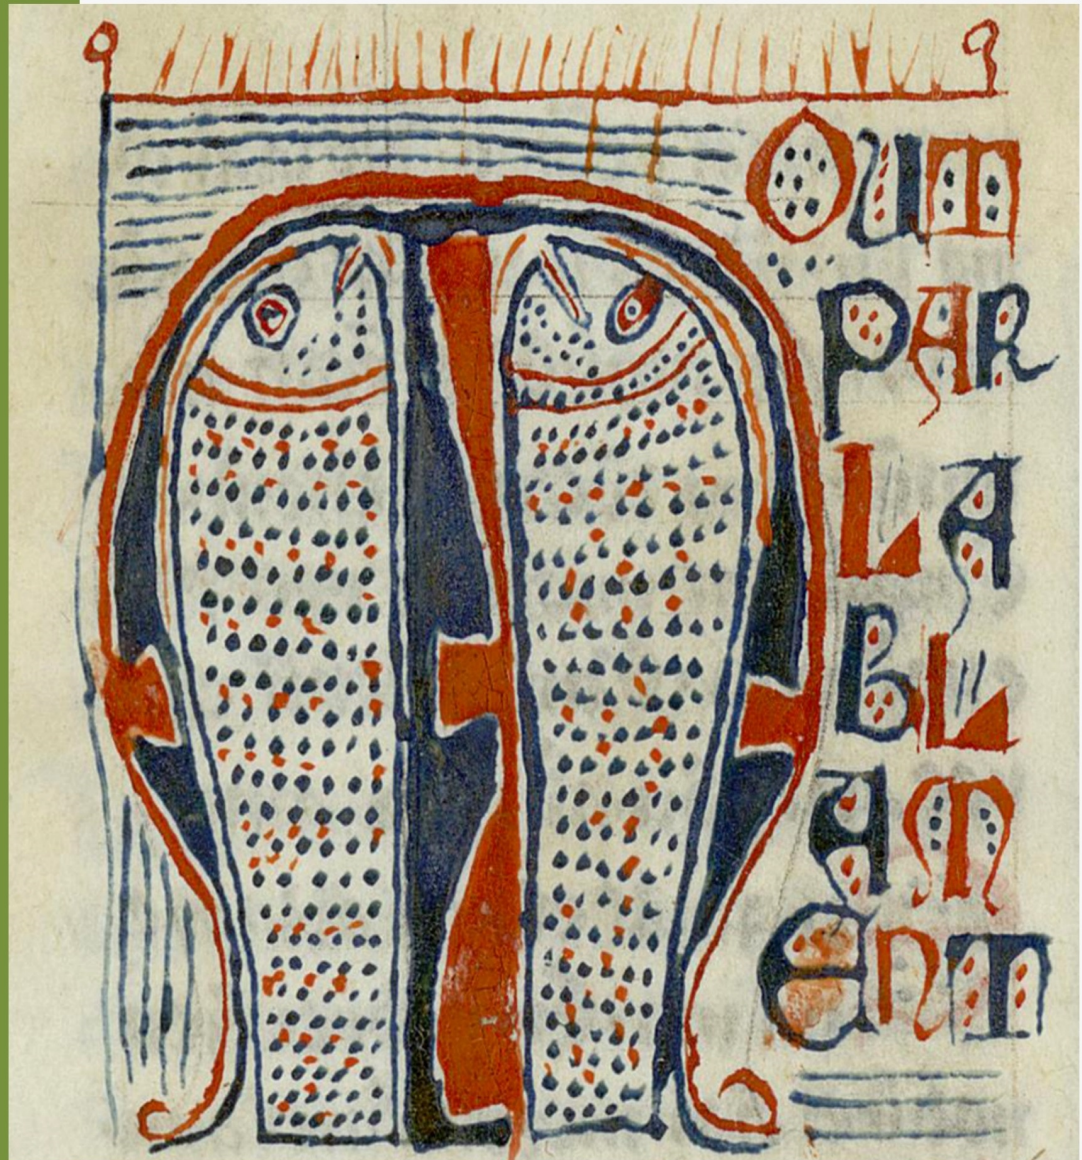 MOUT
PAR
LA
BL
AM
ENT